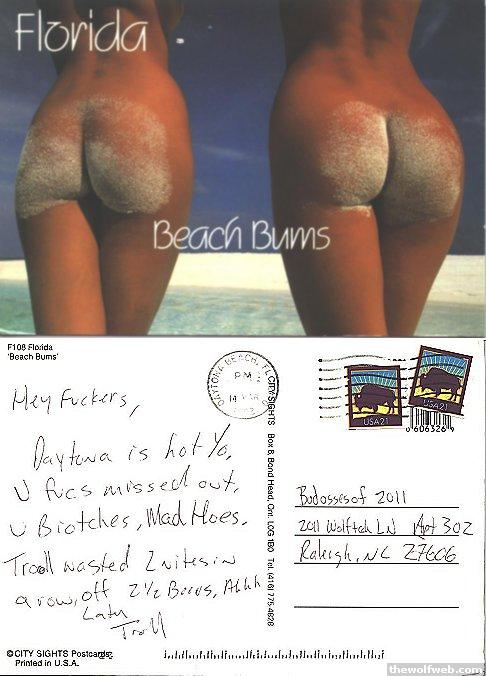 Florida
Beach Bums
F108 Florida
'Beach Bums'
Hey Fuckers,
Daytona is hot Yo,
U fucs missed out,
U Biotches, Mad Hoes.
Troll wasted 2 nites in
a row, off 2 1/2 Beers, Ahhh
Later
Troll
©CITY SIGHTS Postcards
Printed in U.S.A.
CITY SIGHTS Box 8, Bond Head, Ont L0G 1B0 Tel. (416) 775-4828
DAYTONA BEACH, FL
PM
USA21
USA21
Budossesof 2011
2011 Wolftech LN Apt 302
Raleigh, NC 27606
thewolfweb.com